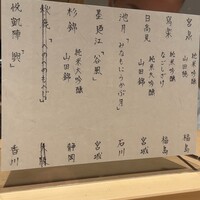 宮泉 純米吟醸 山田錦 福島
寫楽 純米吟醸 なごしざけ 福島
日高見 純米大吟醸 山田錦 宮城
池月 "みなもにうかぶ月" 石川
墨廼江 "谷風" 宮城
杉錦 純米大吟醸 山田錦 静岡
悦凱陣 香川